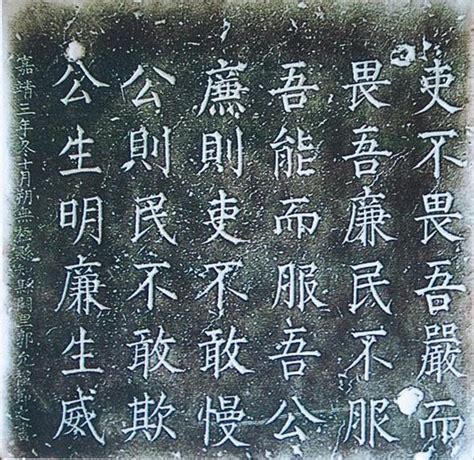 吏不畏吾嚴而
畏吾廉民不服
吾能而服吾公
廉則吏不敢慢
公則民不敢欺
公生明廉生威
嘉靖三年冬十月朔